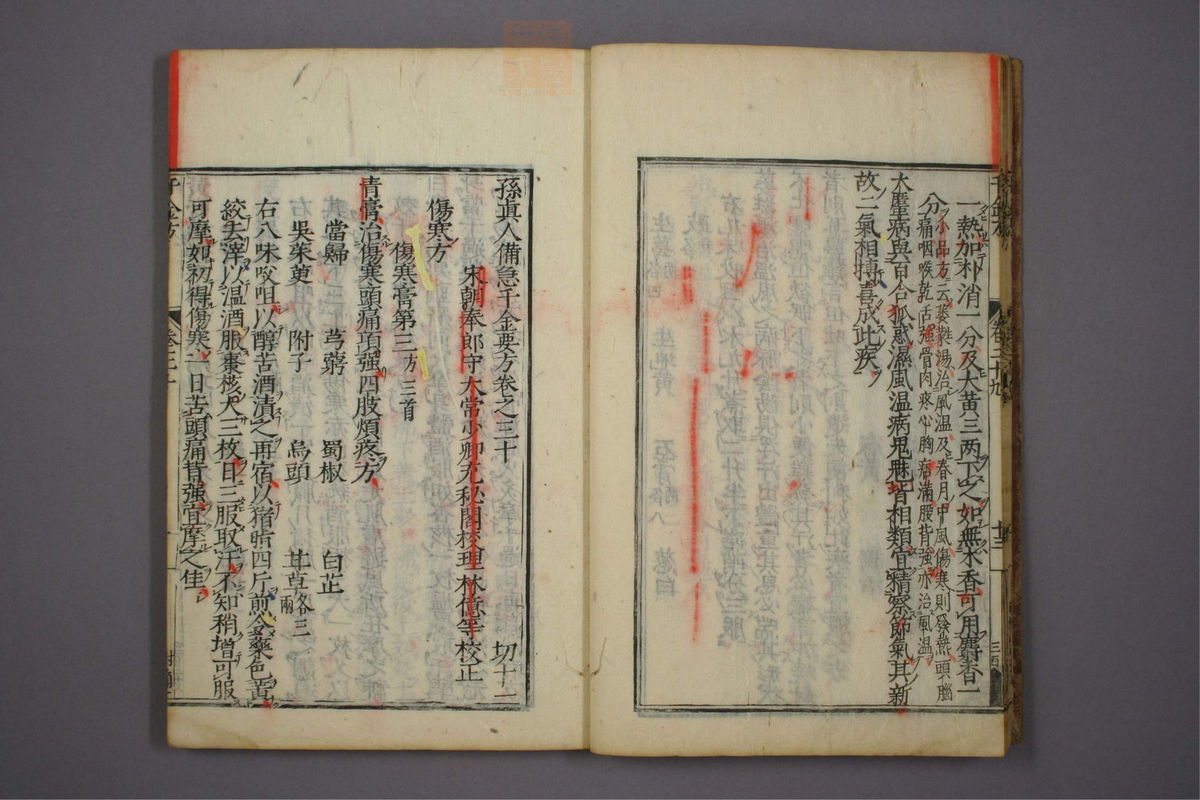 一熱加朴消一分及大黃三两下之如無木香可用麝香一
分小品方云葳蕤湯治風温及春月中風傷寒則發熱頭腦
痛咽喉乾舌強骨肉疼心胸痞滿腰背強亦治風温
大壅病與百合狐惑濕風温病鬼魅皆相類宜精察節氣其新
故二氣相搏喜成此疾
孫真人備急千金要方卷之三十
宋朝奉郎守太常少卿充秘閣校理林億等校正
切十二
傷寒方
傷寒膏第三方三首
青膏治傷寒頭痛項强四肢煩疼方
當歸 芎藭 蜀椒 白芷
吳茱萸 附子 烏頭 甘草各三兩
右八味㕮咀以醇苦酒漬之再宿以猪脂四斤煎令藥色黃
絞去滓以温酒服棗核大三枚日三服取汗不知稍增可服
可摩如初得傷寒一日苦頭痛背强宜摩之佳